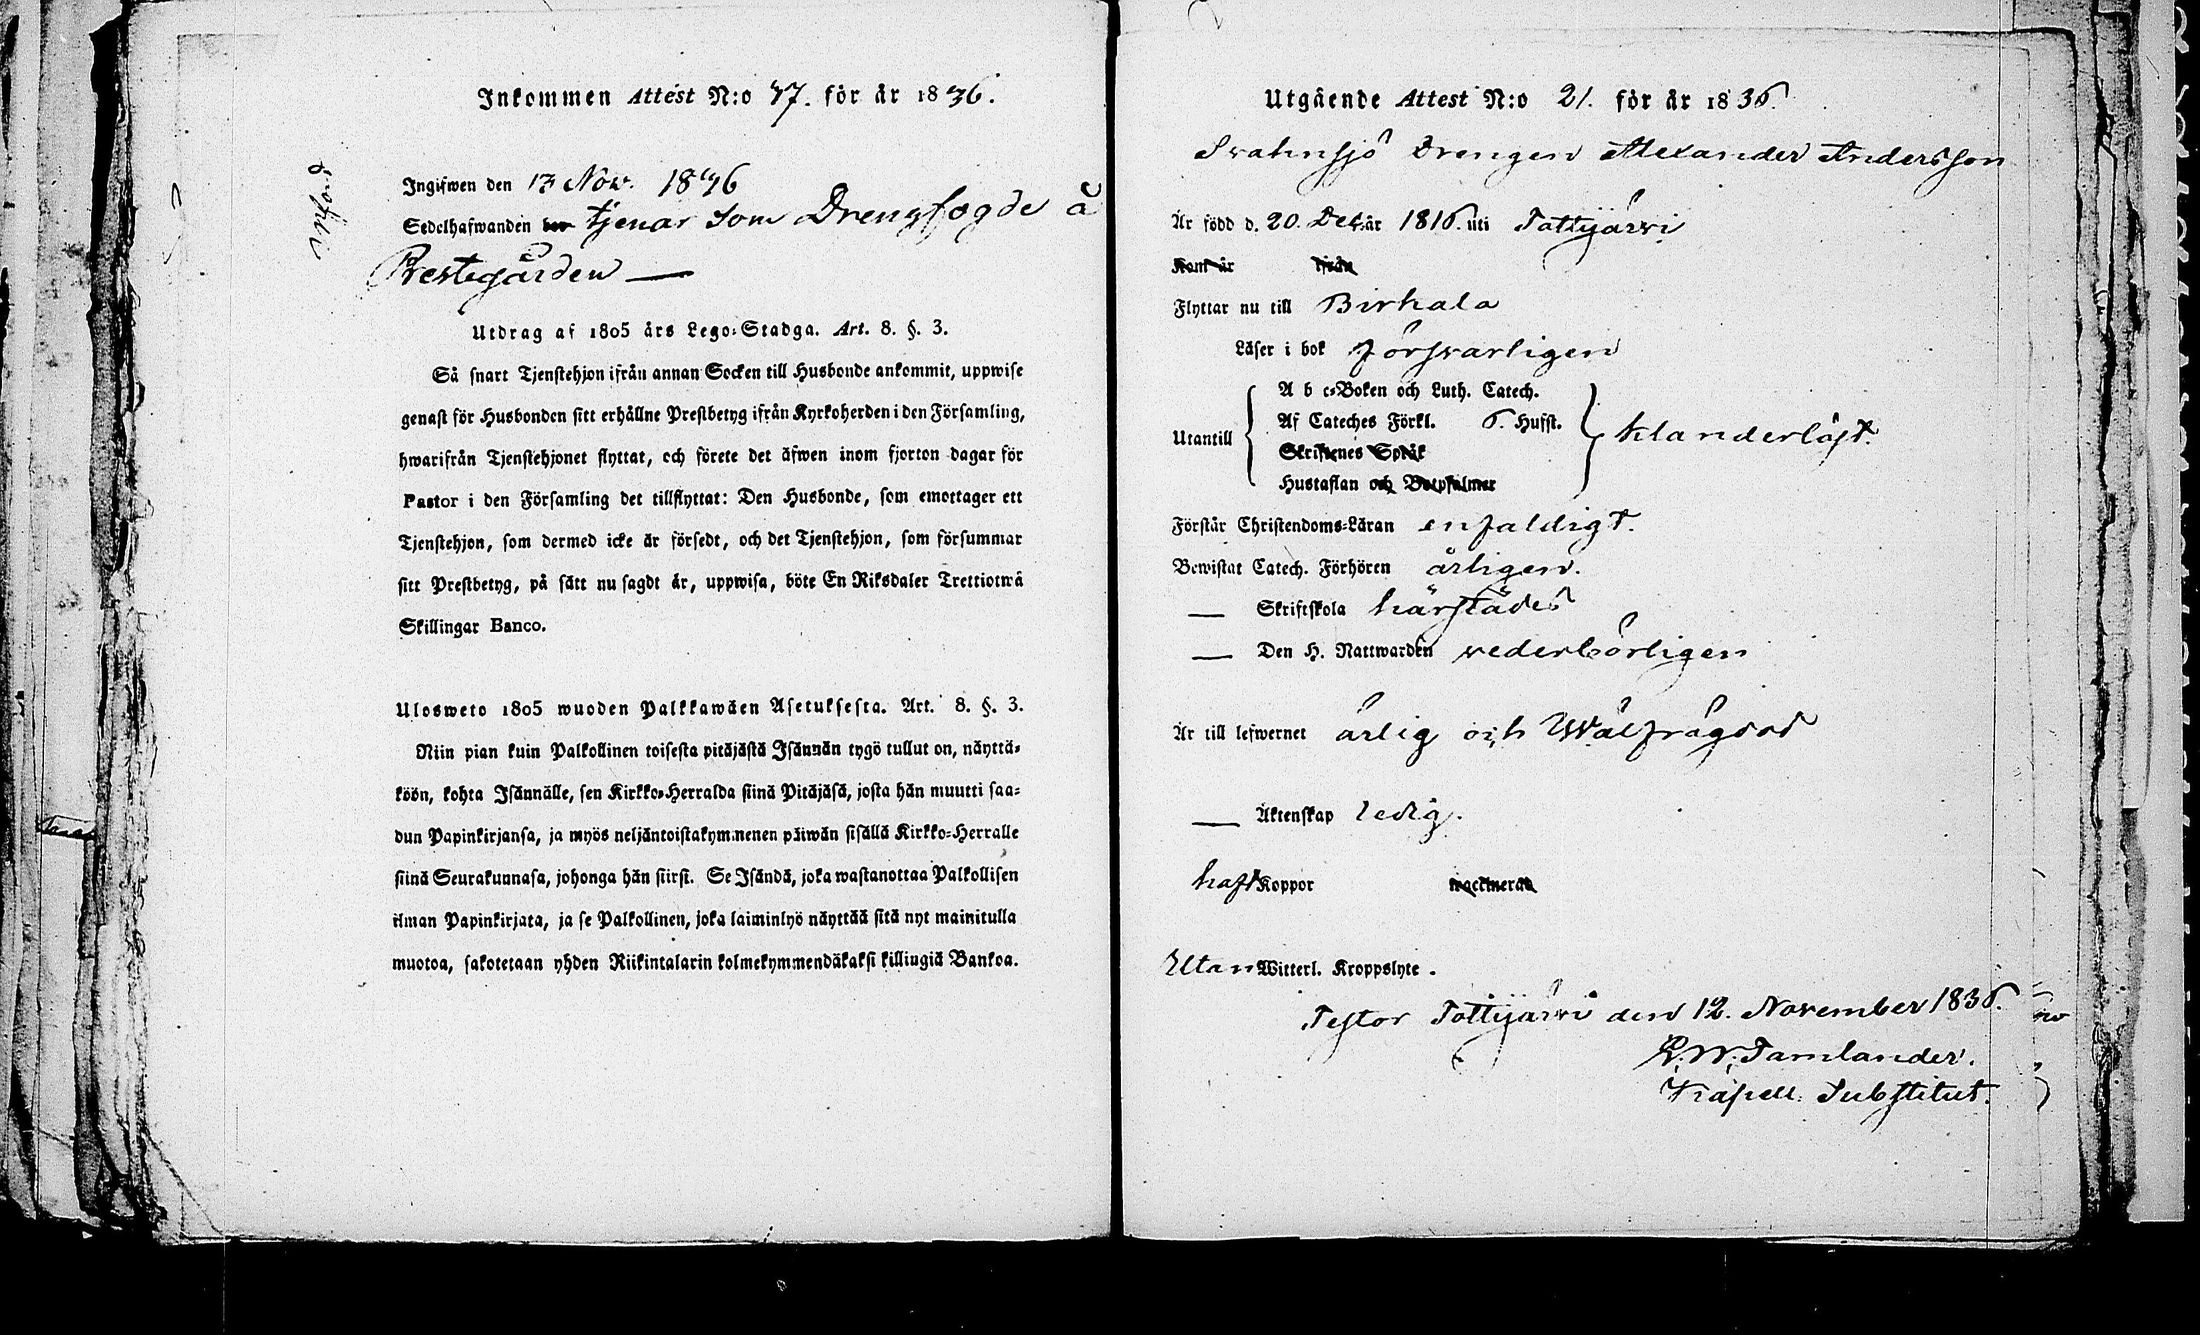 Inkommen Attest N:o 77. för år 1836.
införd
Ingifwen den 17 Nov. 1836
Sedelhafwanden bor tjenar som Drengfogde å
Prestegården —
Utdrag af 1805 års Lego-Stadga. Art. 8. §. 3.
Så snart Tjenstehjon ifrån annan Socken till Husbonde ankommit, uppwise
genast för Husbonden sitt erhållne Prestbetyg ifrån Kyrkoherden i den Församling,
hwarifrån Tjenstehjonet flyttat, och förete det äfwen inom fjorton dagar för
Pastor i den Församling det tillflyttat: Den Husbonde, som emottager ett
Tjenstehjon, som dermed icke är försedt, och det Tjenstehjon, som försummar
sitt Prestbetyg, på sätt nu sagdt är, uppwisa, böte En Riksdaler Trettiotwå
Skillingar Banco.
Ulosweto 1805 wuoden Palkkawäen Asetuksesta. Art. 8. §. 3.
Niin pian kuin Palkollinen toisesta pitäjästä Isännän tygö tullut on, näyttä-
köön, kohta Isännälle, sen Kirkko-Herralda siinä Pitäjäsä, josta hän muutti saa-
dun Papinkirjansa, ja myös neljäntoistakymmenen päiwän sisällä Kirkko-Herralle
siinä Seurakunnasa, johonga hän siirsi. Se Isändä, joka wastanottaa Palkollisen
ilman Papinkirjata, ja se Palkollinen, joka laiminlyö näyttää sitä nyt mainitulla
muotoa, sakotetaan yhden Riikintalarin kolmekymmendäkaksi killingiä Bankoa.
Utgående Attest N:o 21. för år 1836.
Svahnsjö Drengen Alexander Andersson
Är född d. 20. Dec. år 1816. uti Tottijärvi
Kom år ifrån
Flyttar nu till Birkala
Läser i bok försvarligen
A b c-Boken och Luth. Catech.
Af Cateches Förkl. 6. Hufst.
Utantill klanderlöst.
Skriftenes Språk
Hustaflan och Botpsalmer
Förstår Christendoms-Läran enfaldigt.
Bewistat Catech. Förhören årligen.
— Skriftskola härstädes
— Den H. Nattwarden vederbörligen
Är till lefwernet ärlig och Wälfrägdad
— Äktenskap ledig.
haft Koppor waccinerad
Utan Witterl. Kroppslyte.
Testor Tottijärvi den 12. November 1836.
K. W. Tamlander.
Kapell. Substitut.